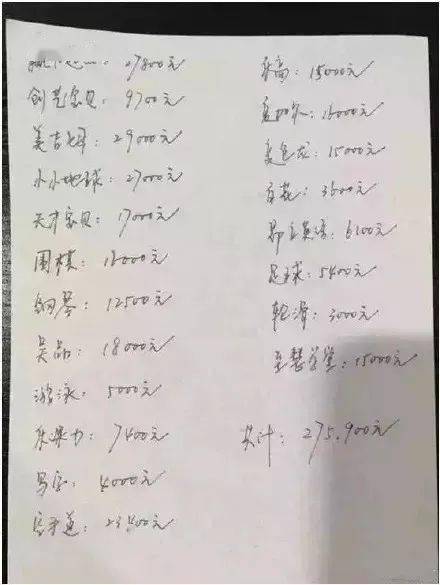 27800元
创艺宝贝：9700元
美吉姆：29000元
小小地球：27000元
天才宝贝：17000元
围棋：16000元
钢琴：12500元
吴品：18000元
游泳：5000元
7400元
写字：4000元
空手道：23400元
乐高：15000元
16000元
变色龙：15000元
3600元
昂立英语：6100元
足球：5400元
轮滑：3000元
至慧学堂：15000元
共计：275.900元